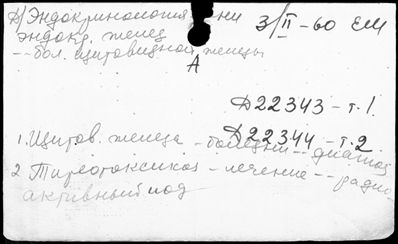 А) Эндокринология
эндокр. желез
3/II-60 ЕМ
-- бол. щитовидной железы
А
Д22343-т.1.
Д22344-т.2.
1. Щитов. железа - болезни -- диагноз
2. Тиреотоксикоз - лечение -- радио-
активный иод